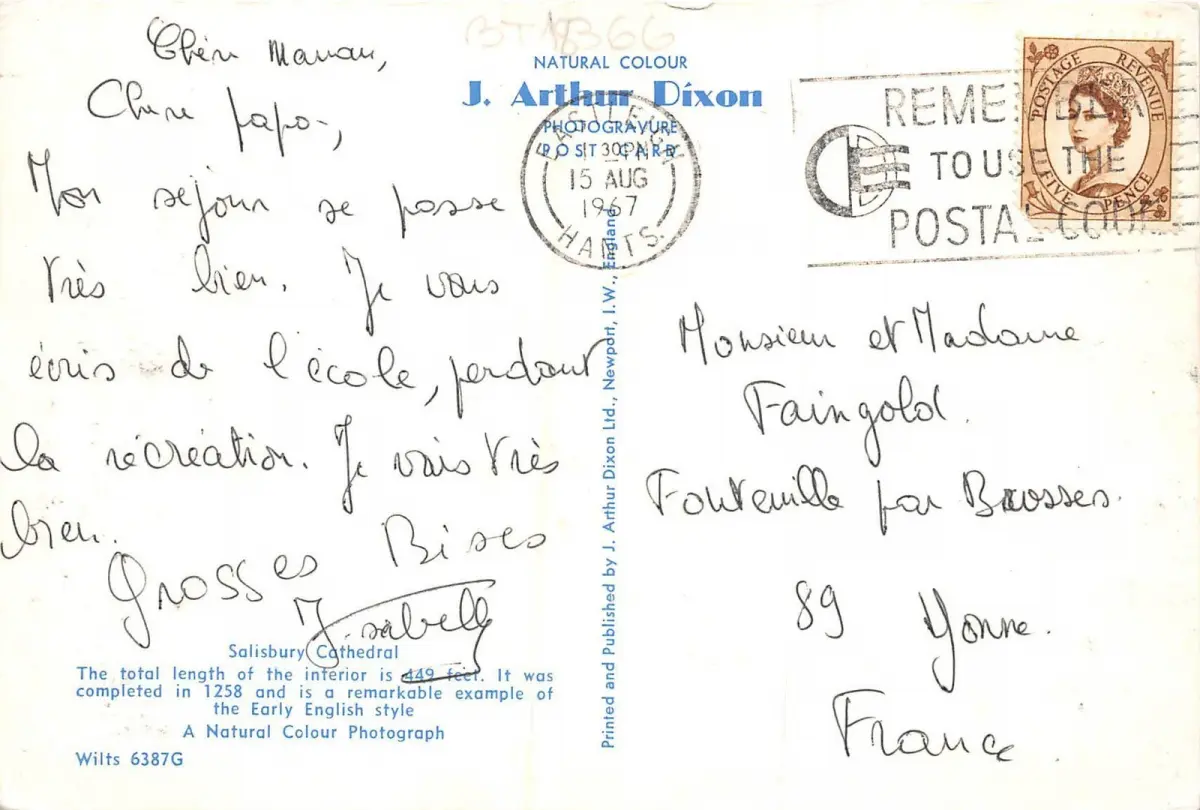 BT18366
Chère Maman,
Cher papa,
Mon séjour se passe
très bien. Je vous
écris de l'école, pendant
la récréation. Je vais très
bien.
Grosses Bises
Isabelle
Salisbury Cathedral
The total length of the interior is 449 feet. It was
completed in 1258 and is a remarkable example of
the Early English style
A Natural Colour Photograph
Wilts 6387G
NATURAL COLOUR
J. Arthur Dixon
PHOTOGRAVURE
POST CARD
Printed and Published by J. Arthur Dixon Ltd., Newport, I.W., England
EASTLEIGH
1 30PM
15 AUG
1967
HANTS.
REMEMBER
TO USE THE
POSTAL CODE
POSTAGE REVENUE
FIVE PENCE
Monsieur et Madame
Faingold.
Fontenille par Brosses.
89 Yonne.
France